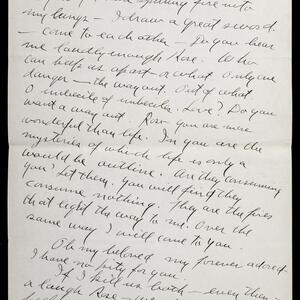 spinning fire into
my lungs — I draw a great sword.
— come to each other — Do you hear
me Rose. Who
can help us apart or what. Only one
danger — the way out. Out of what
O of Love? Do you
want a way out. Rose you are more
wonderful than life. In you are the
mysteries of which life is only a
would be outline. Are they consuming
you? Let them. You will find they
consume nothing. They are the fires
that light the way to me. Over the
same way I will come to you.
Oh my beloved my forever adored
I have no pity for you
If I kill us both — even then —
a laugh Rose